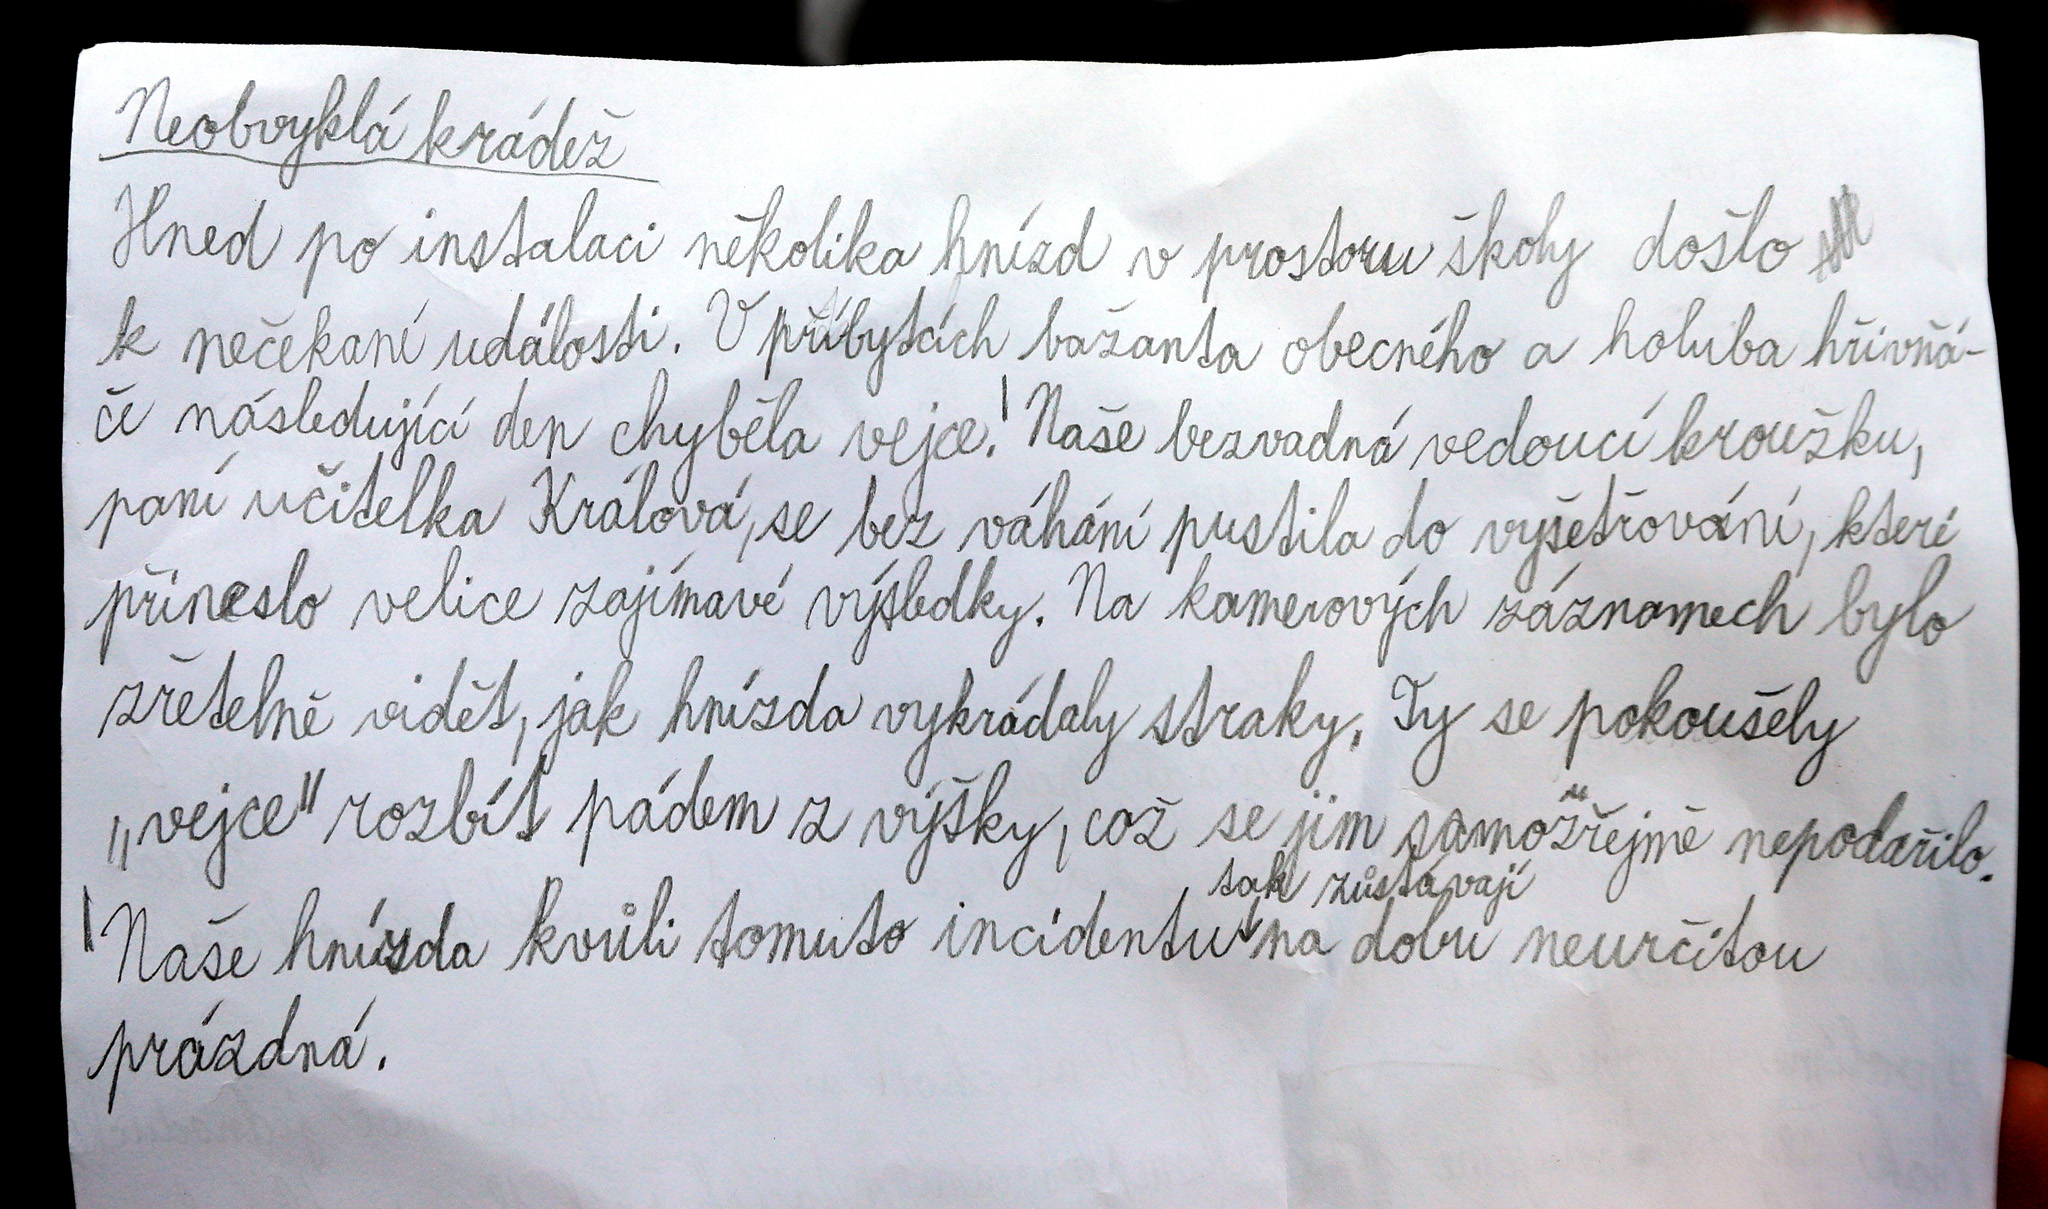 Neobvyklá krádež
Hned po instalaci několika hnízd v prostoru školy došlo
k nečekané události. V příbytcích bažanta obecného a holuba hřivňá-
če následující den chyběla vejce! Naše bezvadná vedoucí kroužku,
paní učitelka Králová, se bez váhání pustila do vyšetřování, které
přineslo velice zajímavé výsledky. Na kamerových záznamech bylo
zřetelně vidět, jak hnízda vykrádaly straky. Ty se pokoušely
„vejce" rozbít pádem z výšky, což se jim samozřejmě nepodařilo.
tak zůstávají
Naše hnízda kvůli tomuto incidentu na dobu neurčitou
prázdná.